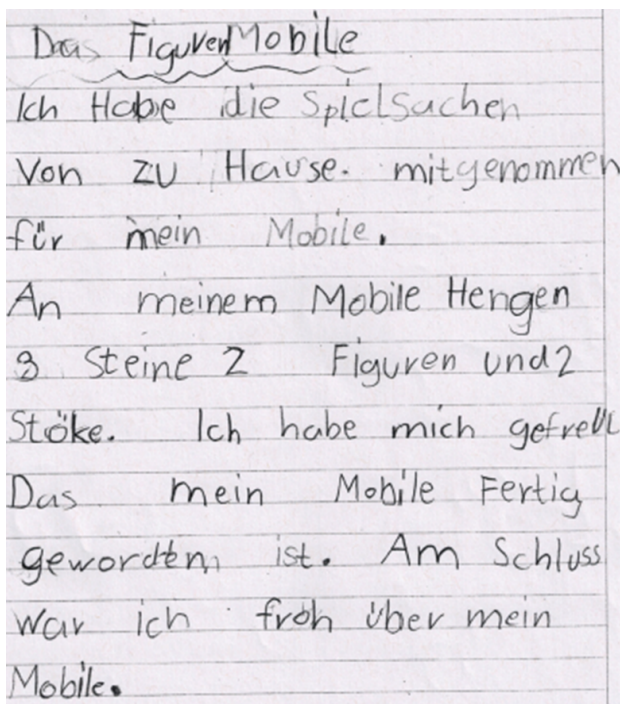 Das FigurenMobile
Ich Habe die Spielsachen
Von zu Hause. mitgenommen
für mein Mobile.
An meinem Mobile Hengen
3 Steine 2 Figuren und 2
Stöke. Ich habe mich gefreut
Das mein Mobile Fertig
geworden ist. Am Schluss
war ich froh über mein
Mobile.